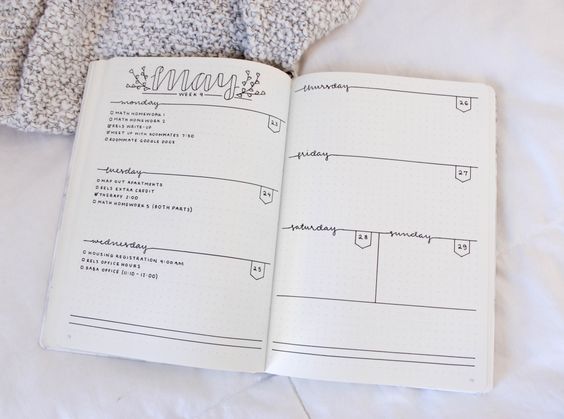 may
WEEK 4
monday
23
MATH HOMEWORK 1
MATH HOMEWORK 2
EELS WRITE-UP
MEET UP WITH ROOMMATES 7:30
ROOMMATE GOOGLE DOCS
tuesday
24
MAP OUT APARTMENTS
EELS EXTRA CREDIT
THERAPY 2:00
MATH HOMEWORK 3 (BOTH PARTS)
wednesday
25
HOUSING REGISTRATION 9:00 AM
EELS OFFICE HOURS
SABA OFFICE (11:10 - 12:00)
thursday
26
friday
27
saturday
28
sunday
29